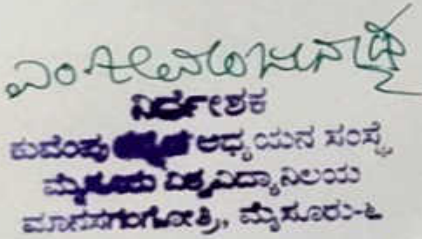 ನಿರ್ದೇಶಕ
ಕುವೆಂಪು ಕನ್ನಡ ಅಧ್ಯಯನ ಸಂಸ್ಥೆ
ಮೈಸೂರು ವಿಶ್ವವಿದ್ಯಾನಿಲಯ
ಮಾನಸಗಂಗೋತ್ರಿ, ಮೈಸೂರು-೬